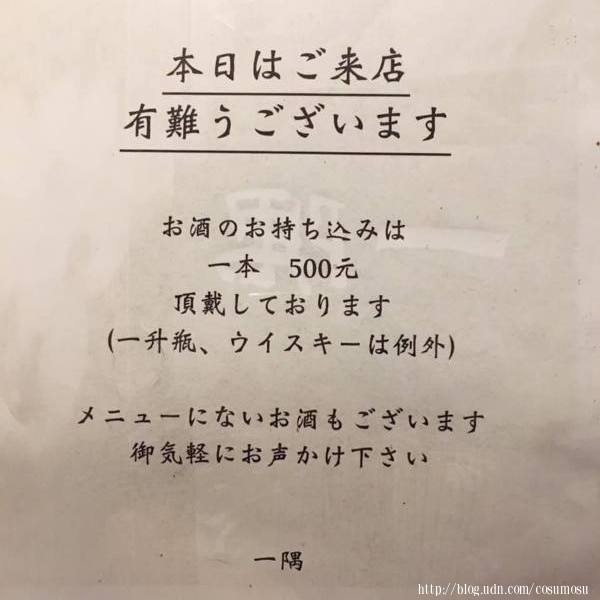 本日はご来店
有難うございます
お酒のお持ち込みは
一本　500元
頂戴しております
(一升瓶、ウイスキーは例外)
メニューにないお酒もございます
御気軽にお声かけ下さい
一隅
http://blog.udn.com/cosumosu